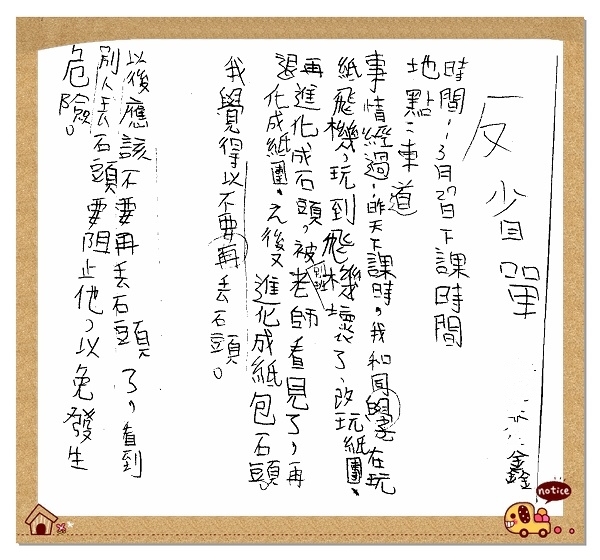 反省單
鑫
時間：3月27日下課時間
地點：車道
事情經過：昨天下課時，我和同學在玩
紙飛機，玩到飛機壞了，改玩紙團，
再進化成石頭，被別班老師看見了，再
退化成紙團，之後又進化成紙包石頭
我覺得以不要再丟石頭。
以後應該不要再丟石頭了，看到
別人丟石頭要阻止他，以免發生
危險。
notice